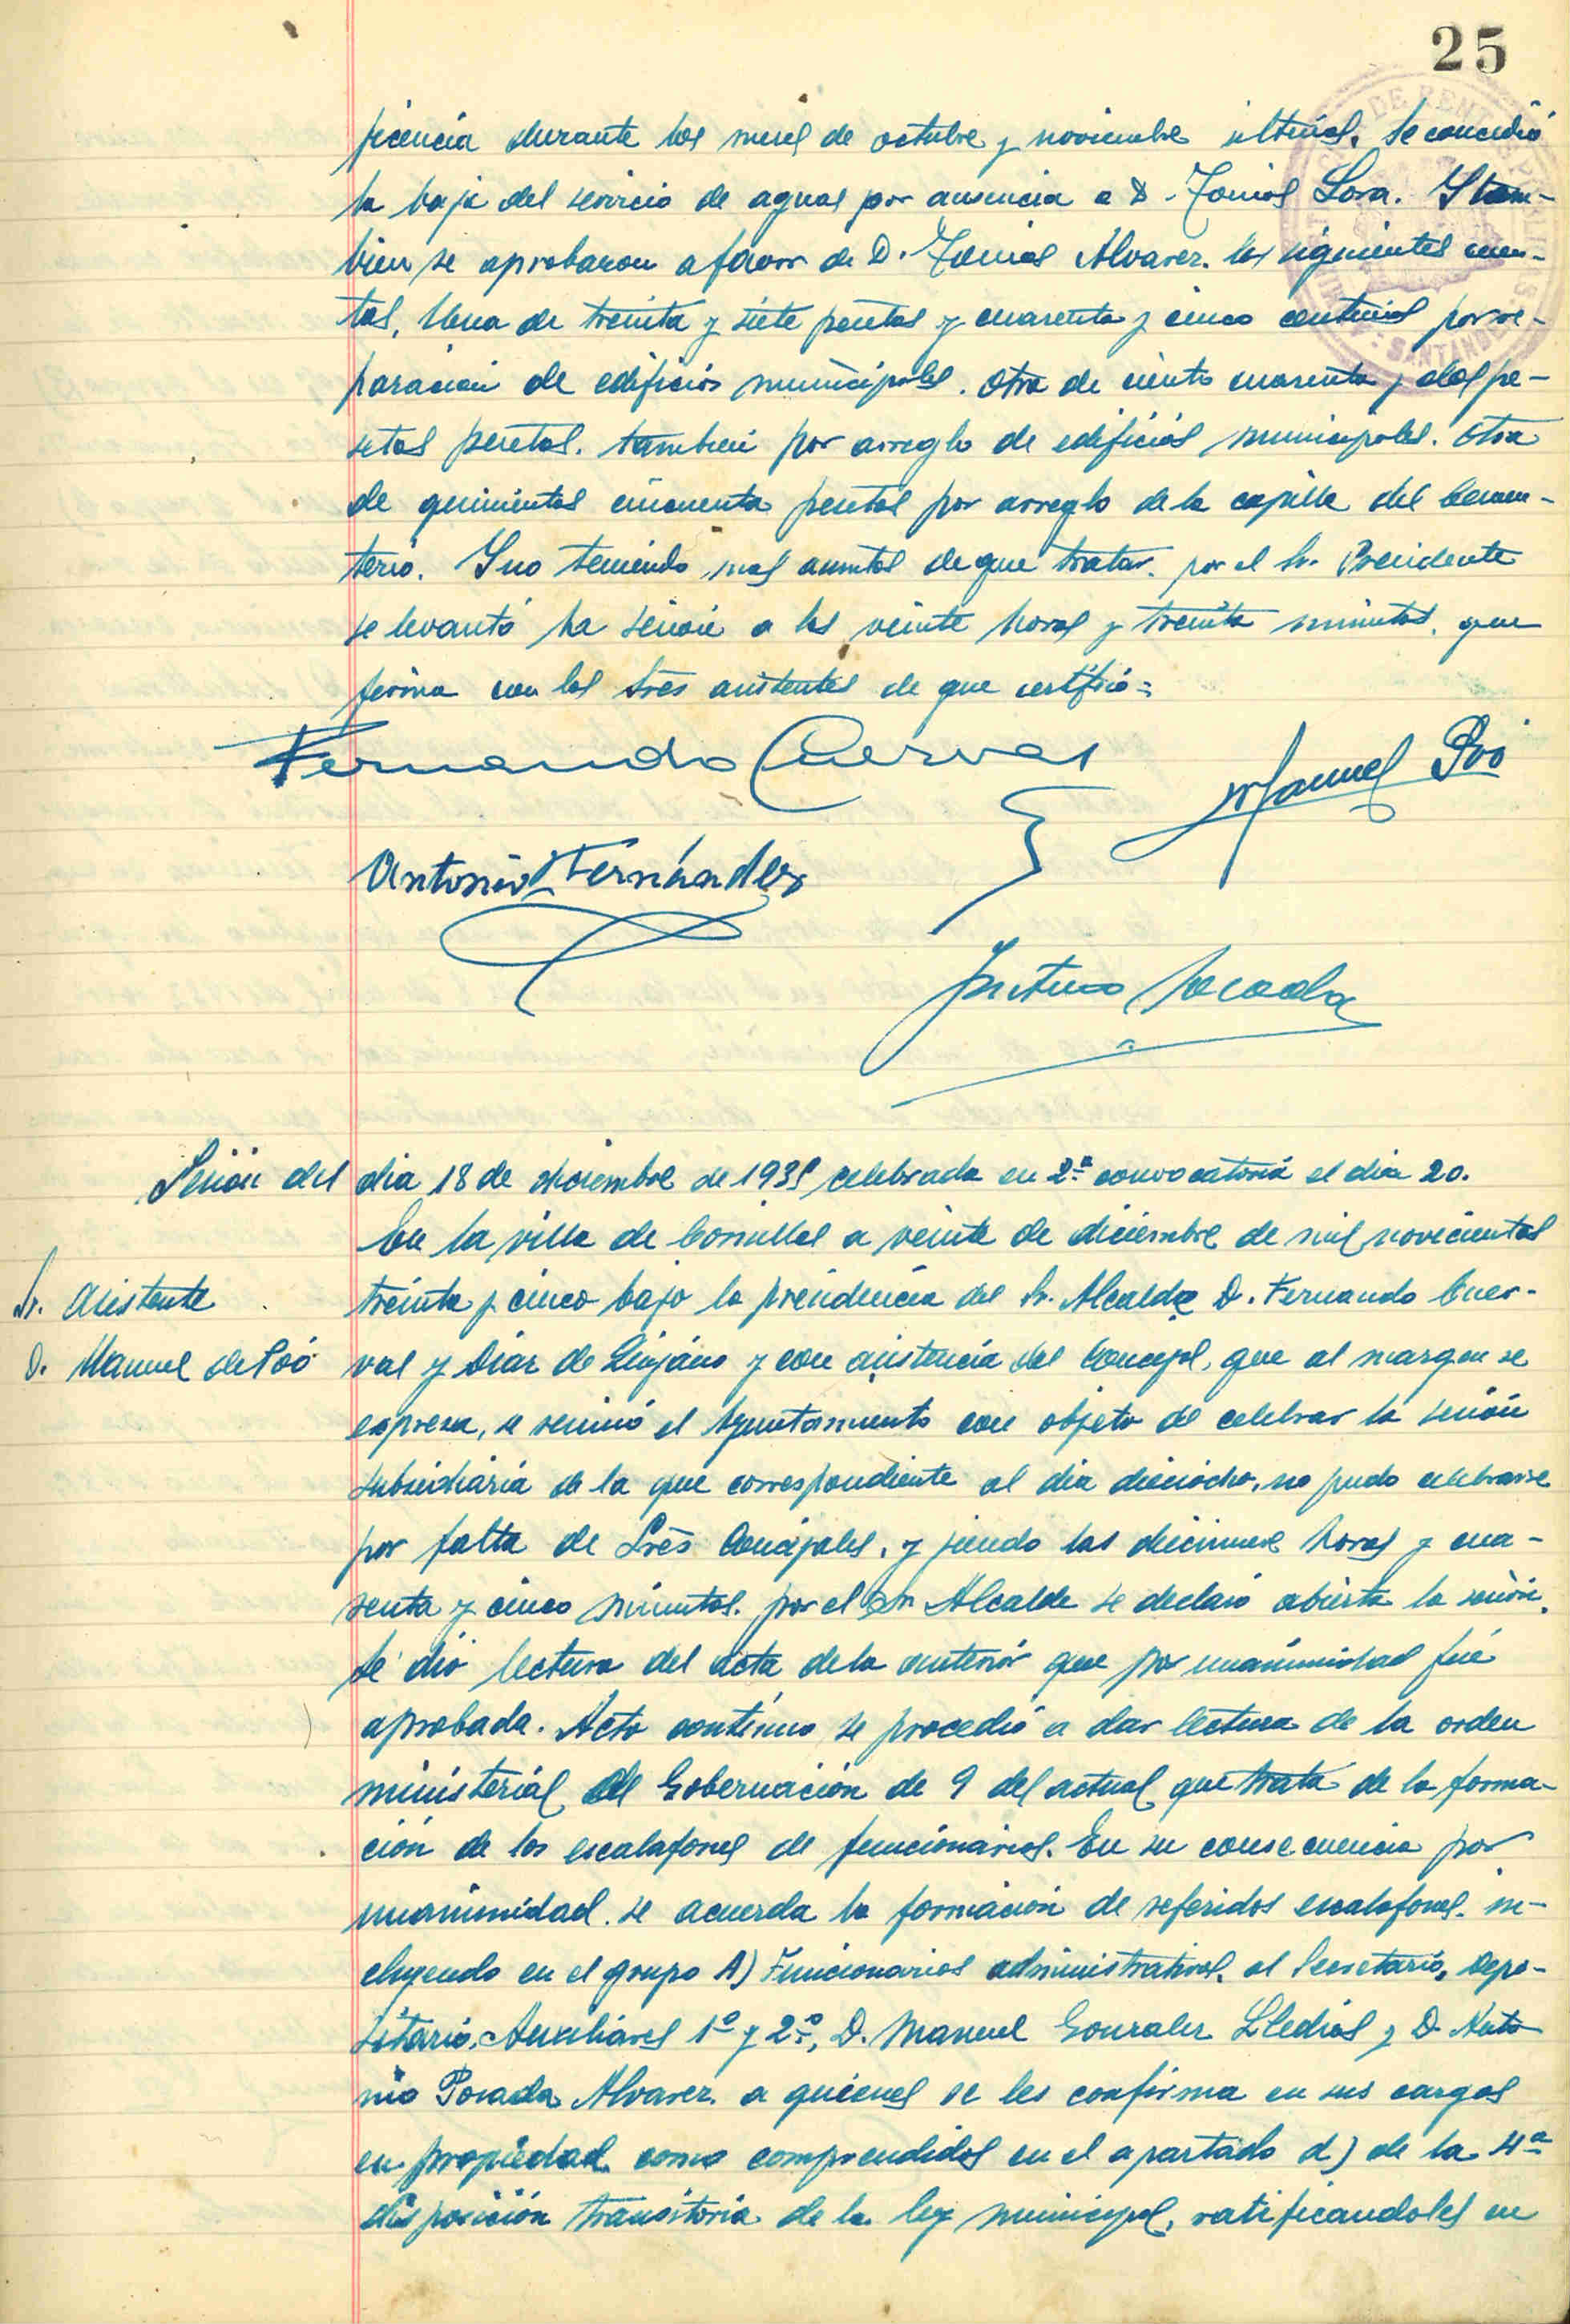 25
ficencia durante los meses de octubre y noviembre ultimos. Se concedió
la baja del servicio de aguas por ausencia a D. Tomás Sosa. Y tam-
bien se aprobaron a favor de D. Tomás Alvarez. las siguientes cuen-
tas, Una de treinta y siete pesetas y cuarenta y cinco centimos por re-
paración de edificios municipales. Otra de ciento cuarenta y dos pe-
setas pesetas. tambien por arreglo de edificios municipales. Otra
de quinientas cincuenta pesetas por arreglo de la capilla del Cemen-
terio. Y no teniendo mas asuntos de que tratar. por el Sr. Presidente
se levantó la sesión a las veinte horas y treinta minutos, que
firma con los Sres asistentes de que certifico=
Fernando Cuervas
Manuel Poo
Antonio Fernández
Sesión del dia 18 de diciembre de 1935 celebrada en 2ª convocatoria el dia 20.
En la villa de Comillas a veinte de diciembre de mil novecientos
Sr. Asistente
treinta y cinco bajo la presidencia del Sr. Alcalde D. Fernando Cuer-
D. Manuel de Poó
vas y Diaz de Quijano y con asistencia del Concejal, que al margen se
expresa, se reunió el Ayuntamiento con objeto de celebrar la sesión
subsidiaria de la que correspondiente al dia dieciocho, no pudo celebrarse
por falta de Sres Concejales, y siendo las diecinueve horas y cua-
renta y cinco minutos. por el Sr Alcalde se declaró abierta la sesión.
Se dió lectura del acta de la anterior que por unanimidad fué
aprobada. Acto continuo se procedió a dar lectura de la orden
ministerial de Gobernación de 9 del actual que trata de la forma-
ción de los escalafones de funcionarios. En su consecuencia por
unanimidad. se acuerda la formación de referidos escalafones. in-
cluyendo en el grupo A) Funcionarios administrativos. al Secretario, Depo-
sitario, Auxiliares 1º y 2º, D. Manuel Gonzalez Lledias y D. Anto
nio Posada Alvarez. a quienes se les confirma en sus cargos
en propiedad como comprendidos en el apartado d) de la 4ª
disposición transitoria de la ley municipal, ratificandoles en